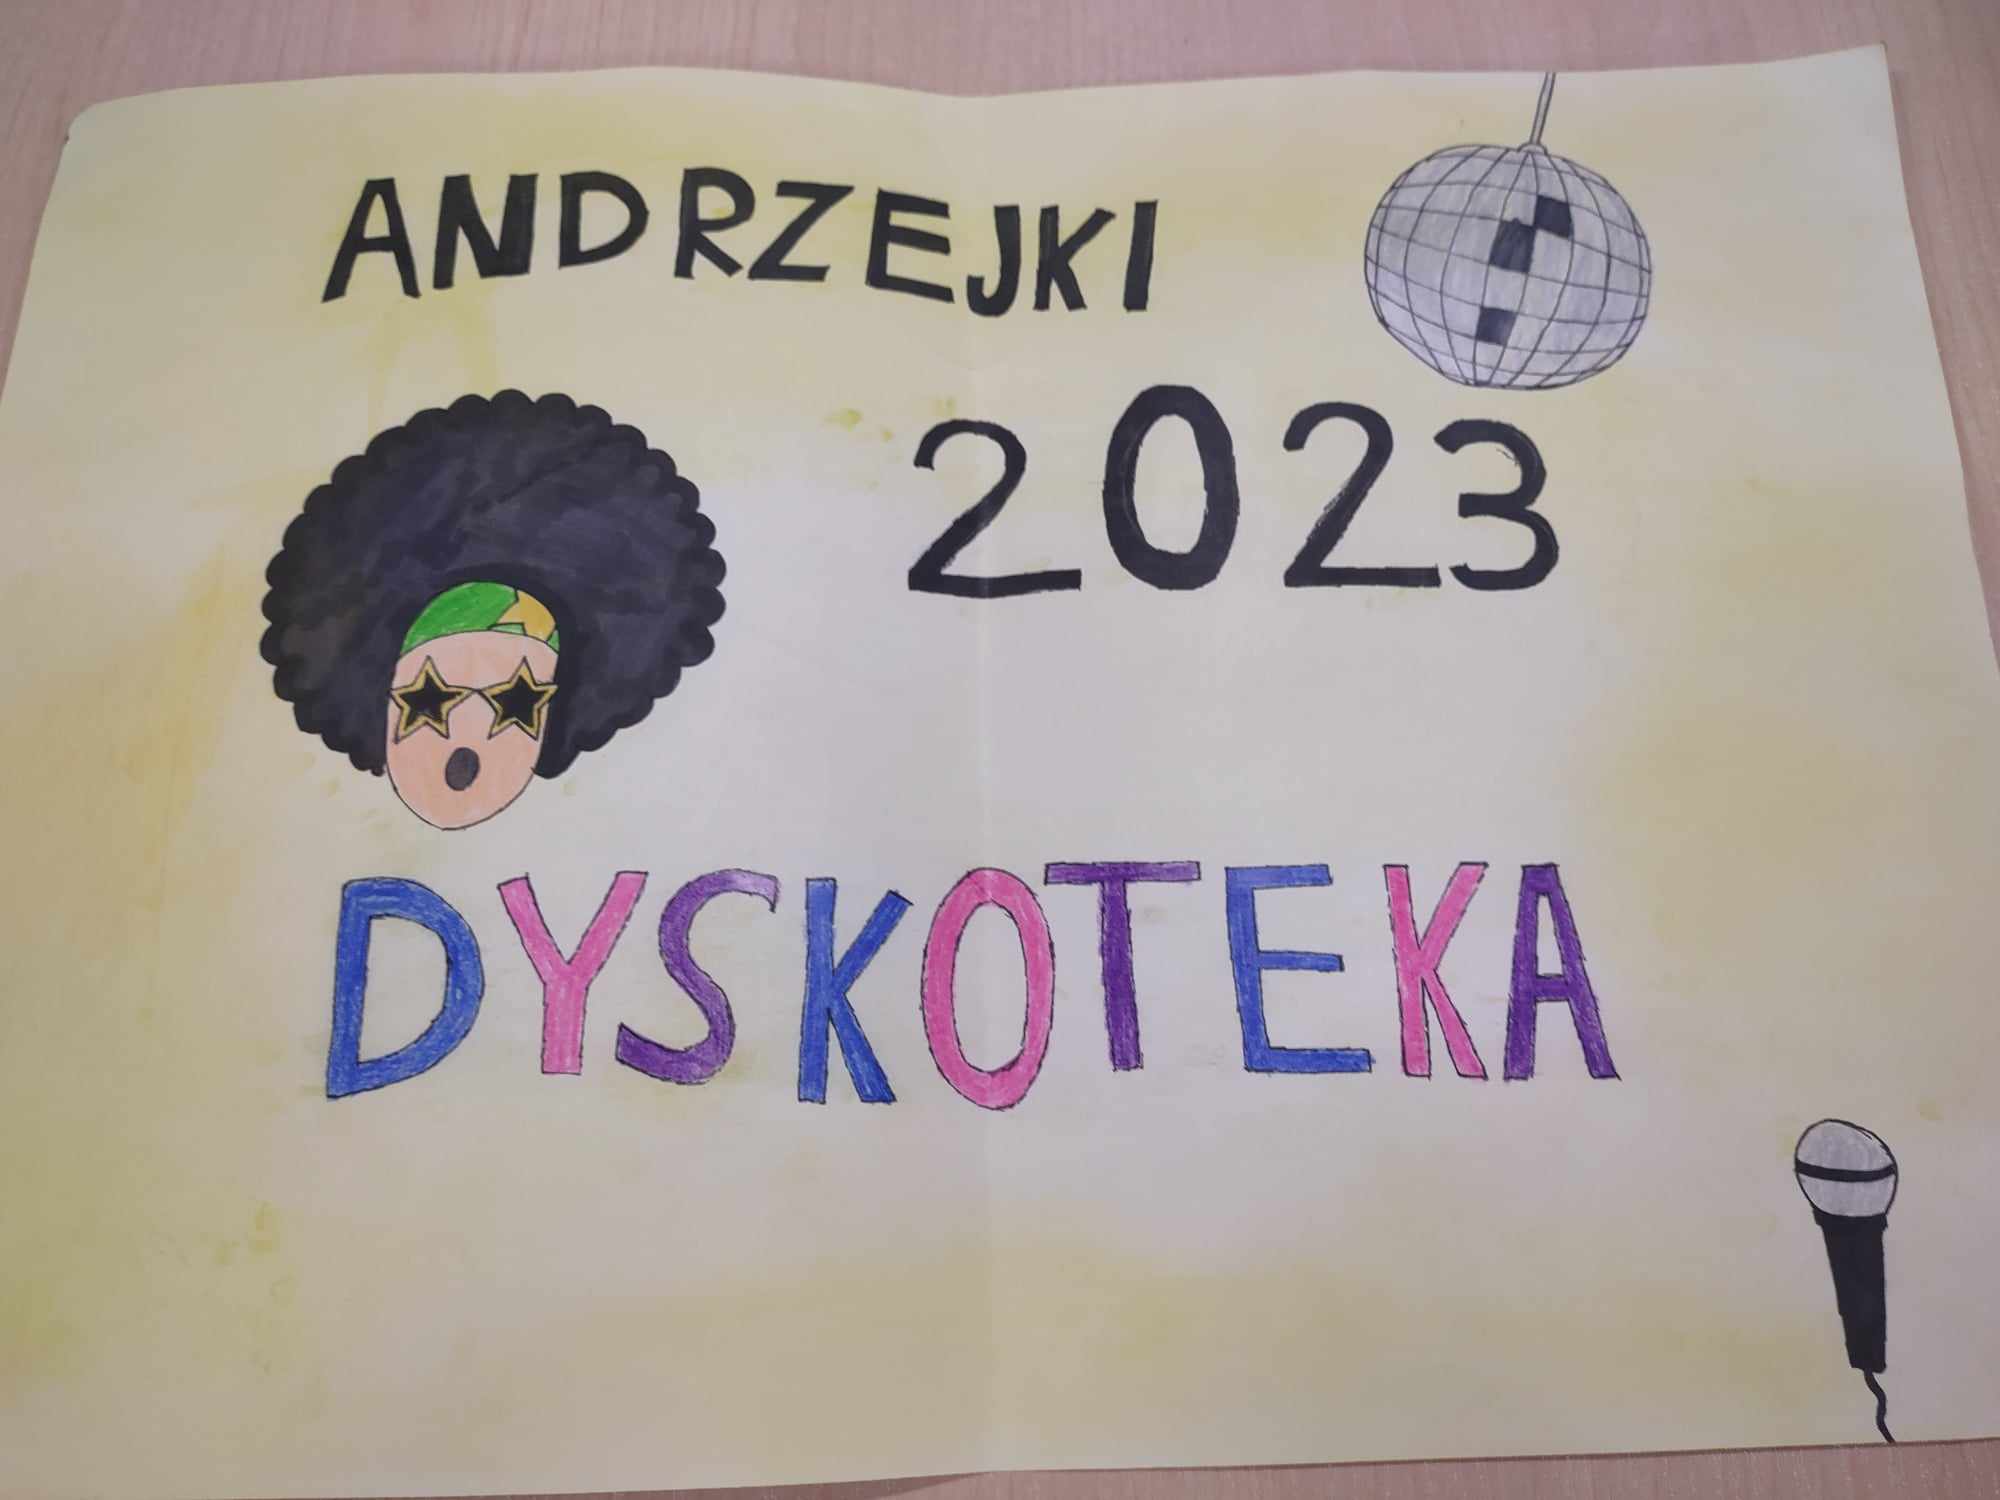 ANDRZEJKI
2023
DYSKOTEKA